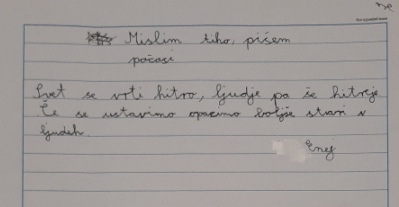 Mislim tiho, pišem
počasi
Svet se vrti hitro, ljudje pa še hitreje.
Če se ustavimo opazimo boljše stvari v
ljudeh.
Enej